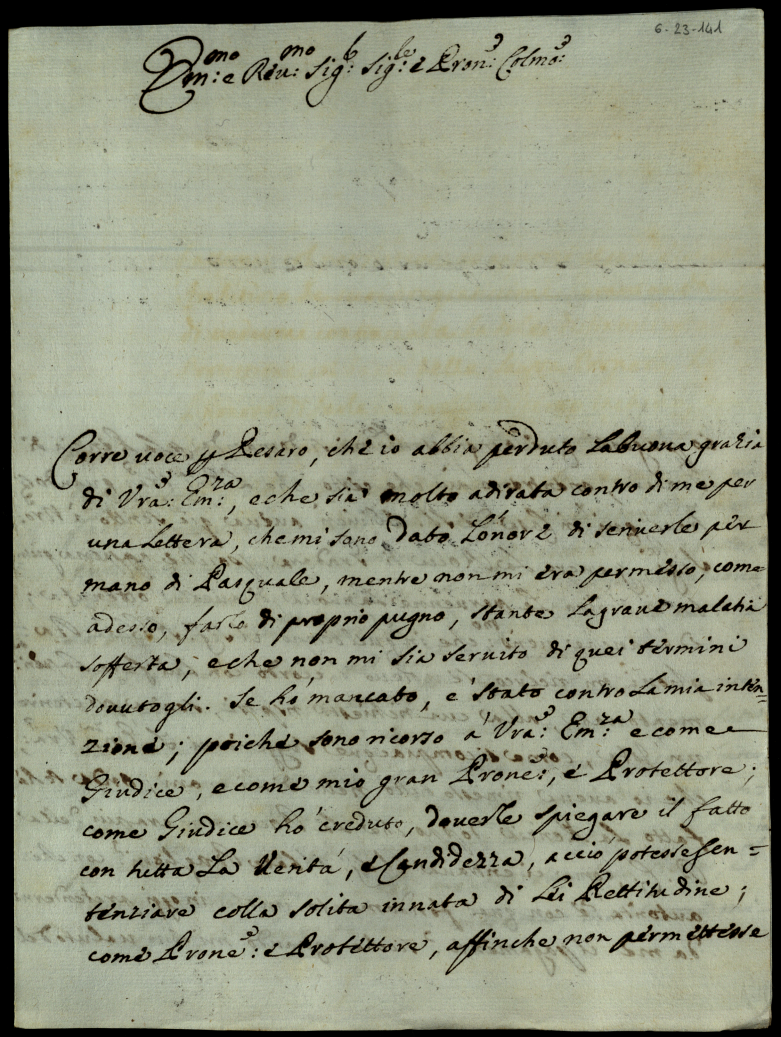 6-23-141
Em:mo e Rev:mo Sig:r Sig:re e Pron:e Colmo:
Corre voce p Pesaro, che io abbia perduto La buona grazia
di Vra: Em:za, e che sia molto adirata contro di me per
una Lettera, che mi sono dato L'onore di scriverle per
mano di Pasquale, mentre non mi era permesso, come
adesso, farlo di proprio pugno, stante La grave malatia
sofferta, e che non mi sia servito di quei termini
dovutogli. Se hò mancato, è stato contro La mia inten=
zione; poiche sono ricorso à Vra: Em:za e come
Giudice, e come mio gran Prone:, e Protettore;
come Giudice hò creduto, doverle spiegare il fatto
con tutta La Verità, e Candidezza, acciò potesse Sen=
tenziare colla solita innata di Lei Rettitudine;
come Prone: e Protettore, affinche non permettesse